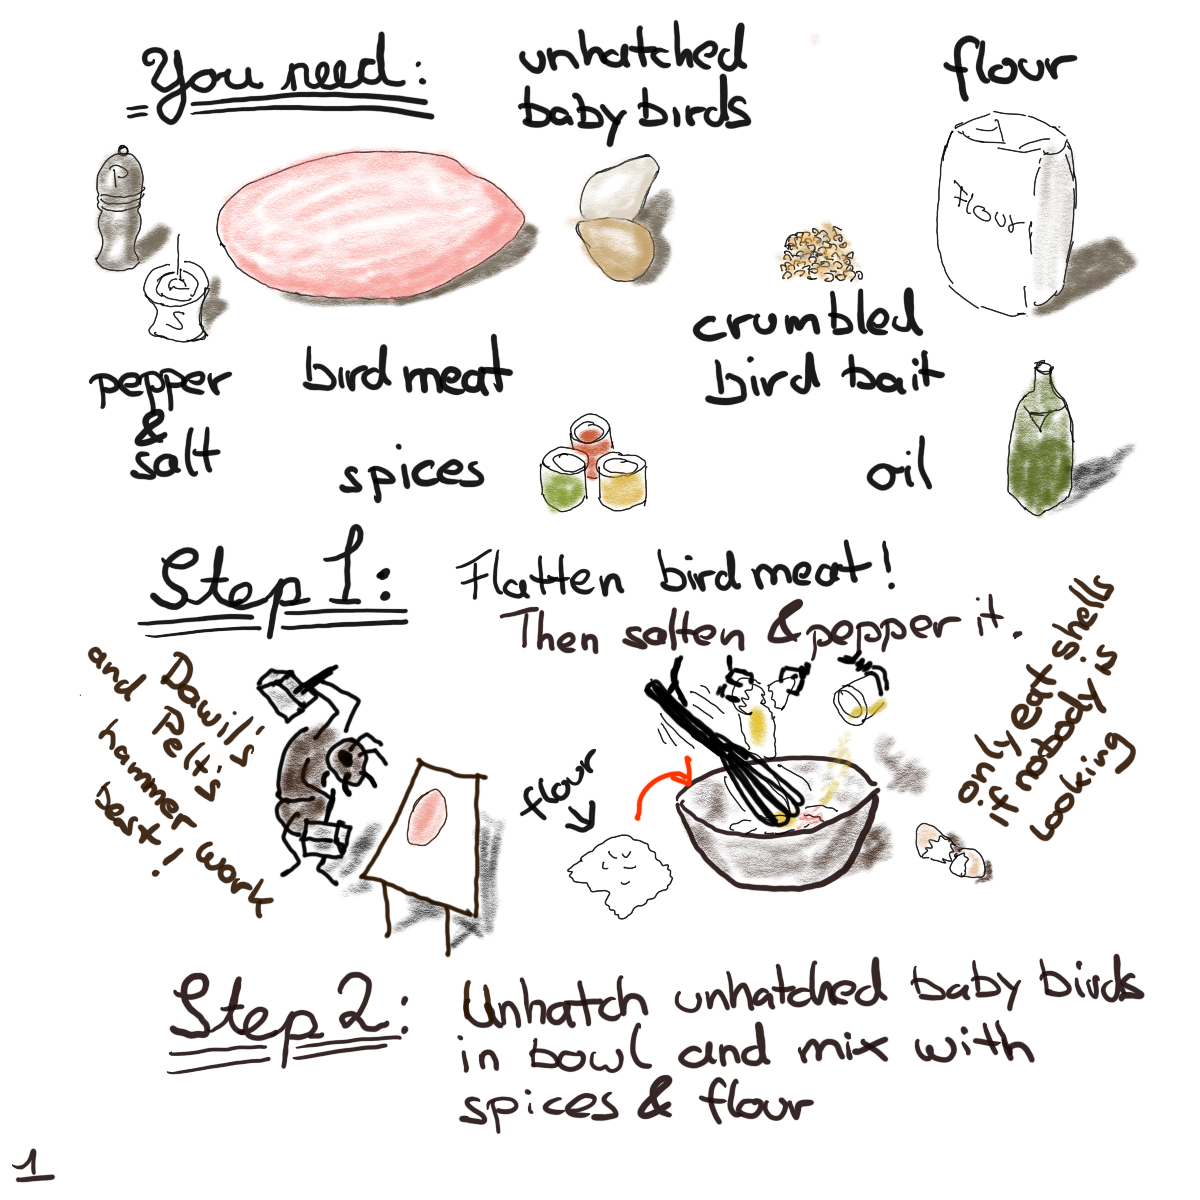 You need:
unhatched
baby birds
flour
P
S
Flour
pepper
&
salt
bird meat
crumbled
bird bait
spices
oil
Step 1:
Flatten bird meat!
Then salten & pepper it.
Dawil's
and Pelt's
hammer work
best!
flour
only eat shells
if nobody is
looking
Step 2:
Unhatch unhatched baby birds
in bowl and mix with
spices & flour
1